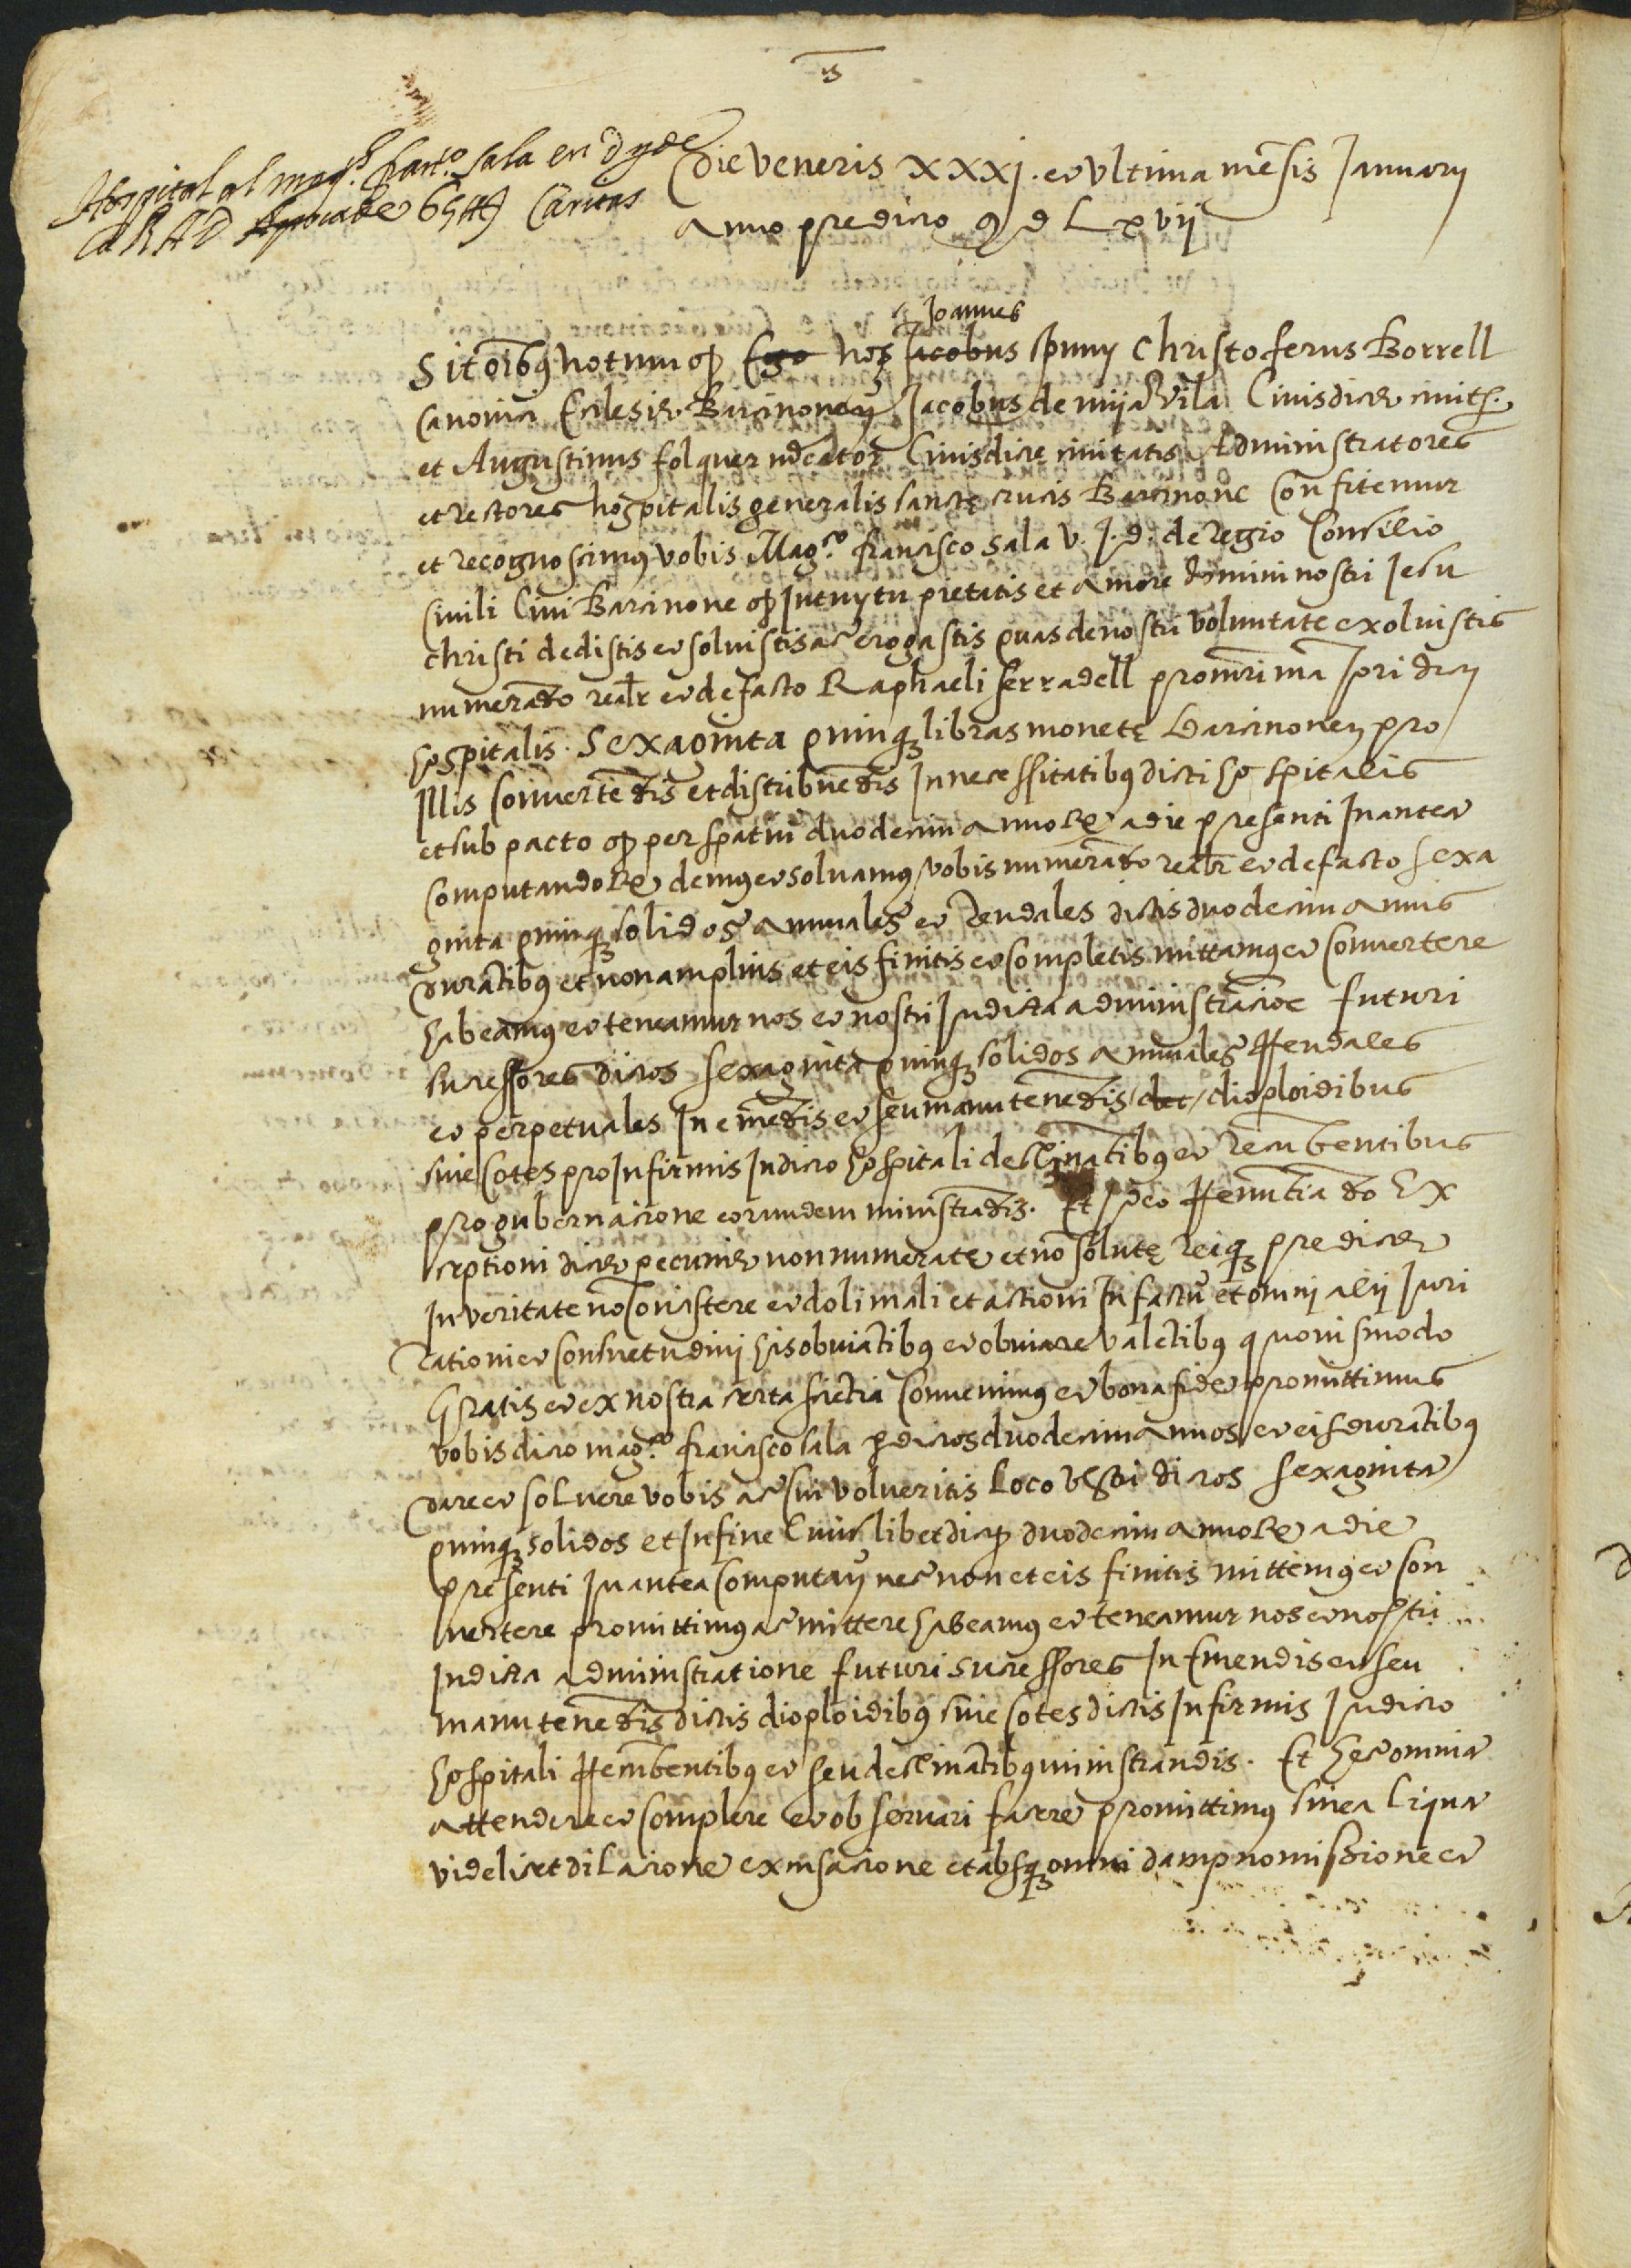 Hospital al magch franco. sala
65 Caritas
Die veneris XXXJ. et ultima mēsis Januarij
Anno predicto M D Lxvij
Joannes
Sit oībꝰ notum qꝫ Ego nos Jacobus spuny Christoferus Borrell
Canonici Ecclesie Barcinoneñ Jacobus de mijavila Civis dicte civitꝭ.
et Augustinus folquer mercator Civis dicte civitatis Administratores
et rectores hospitalis generalis sancte crucis Barcinone Confitemur
et recognoscimꝰ vobis Magco francisco sala v. J. d. de regio Consilio
Civili Civi Barcinone qꝫ Intuytu pietatis et amore domini nostri Jesu
christi dedistis et solvistis ac erogastis quas de nostri voluntate exolvistis
numerādo realr et de facto Raphaeli serradell priori dicti
hospitalis. Sexaginta quinqꝫ libras monetę barcinoneñ pro
Illis convertēdis et distribuēdis In necessitatibꝰ dicti hospitalis
et sub pacto qꝫ per spatiū duodecim annoꝝ a die presenti In antea
computandoꝝ demꝰ et solvamꝰ vobis numerādo realr et de facto sexa
ginta quinqꝫ solidos annuales et rendales dictis duodecim annis
durātibꝰ et non amplius et eis finitis et completis mittamꝰ et convertere
habeamꝰ et teneamur nos et nostri In dicta administracioē futuri
successores dictos sexaginta quinqꝫ solidos annuales Rendales
et perpetuales In emēdis et seu manutenēdis dec dioploidibus
sive cotes pro Infirmis In dicto hospitali declinātibꝰ et recubentibus
pro gubernacione eorumdem ministrādis. Et Ideo Renūtiādo Ex
ceptioni dicte pecunie non numerate et nō solutę reiqꝫ predicte
In veritate nō consistere et doli mali et actioni In factū et omnij alij Juri
rationi et consuetudinij his obviātibꝰ et obviare valētibꝰ quovismodo
Gratis et ex nostra certa sciētia convenimꝰ et bona fide promittimus
vobis dicto magco francisco sala p dictos duodecim annos et eis durātibꝰ
dare et solvere vobis ac cui volueritis Loco vestri dictos sexaginta
quinqꝫ solidos et In fine Cuiuslibet dictoꝝ duodecim annoꝝ a die
presenti In antea computañ necnon et eis finitis mittemꝰ et con
vertere promittimꝰ ac mittere habeamꝰ et teneamur nos et nostri
In dicta administratione futuri successores In Emendis et seu
manutenēdis dictis dioploidibꝰ sive cotes dictis Infirmis In dicto
hospitali Recubentibꝰ et seu declinātibꝰ ministrandis. Et hec omnia
attendere et complere et observari facere promittimꝰ sine aliqua
videlicet dilacione excusacione et absqꝫ omni dampno missione et